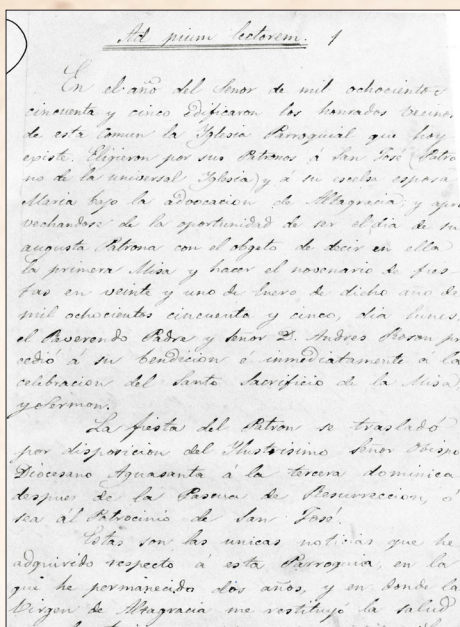 Ad pium lectorem. 1
En el año del Señor de mil ochocientos
cincuenta y cinco edificaron los honrados vecinos
de esta Comun la Yglesia Parroquial que hoy
existe. Eligieron por sus Patronos á San José (Patro
no de la universal Yglesia) y á su escelsa esposa
María bajo la advocacion de Altagracia; y apro
vechandose de la oportunidad de ser el dia de su
augusta Patrona con el objeto de decir en ella
la primera Misa y hacer el novenario de fies
tas en veinte y uno de Enero de dicho año de
mil ochocientos cincuenta y cinco, dia lunes,
el Reverendo Padre y Señor D. Andres Roson pr
cedió á su bendicion e inmediatamente á la
celebracion del Santo Sacrificio de la Misa,
y Sermon.
La fiesta del Patron se trasladó
por disposicion del Ylustrisimo Señor Obispo
Diocesano Aguasanta á la tercera dominica
despues de la Pascua de Resurreccion, ó
sea ál Patrocinio de San José.
Estas son las unicas noticias que he
adquirido respecto á esta Parroquia, en la
que he permanecido dos años, y en donde la
Virgen de Altagracia me restituyó la salud